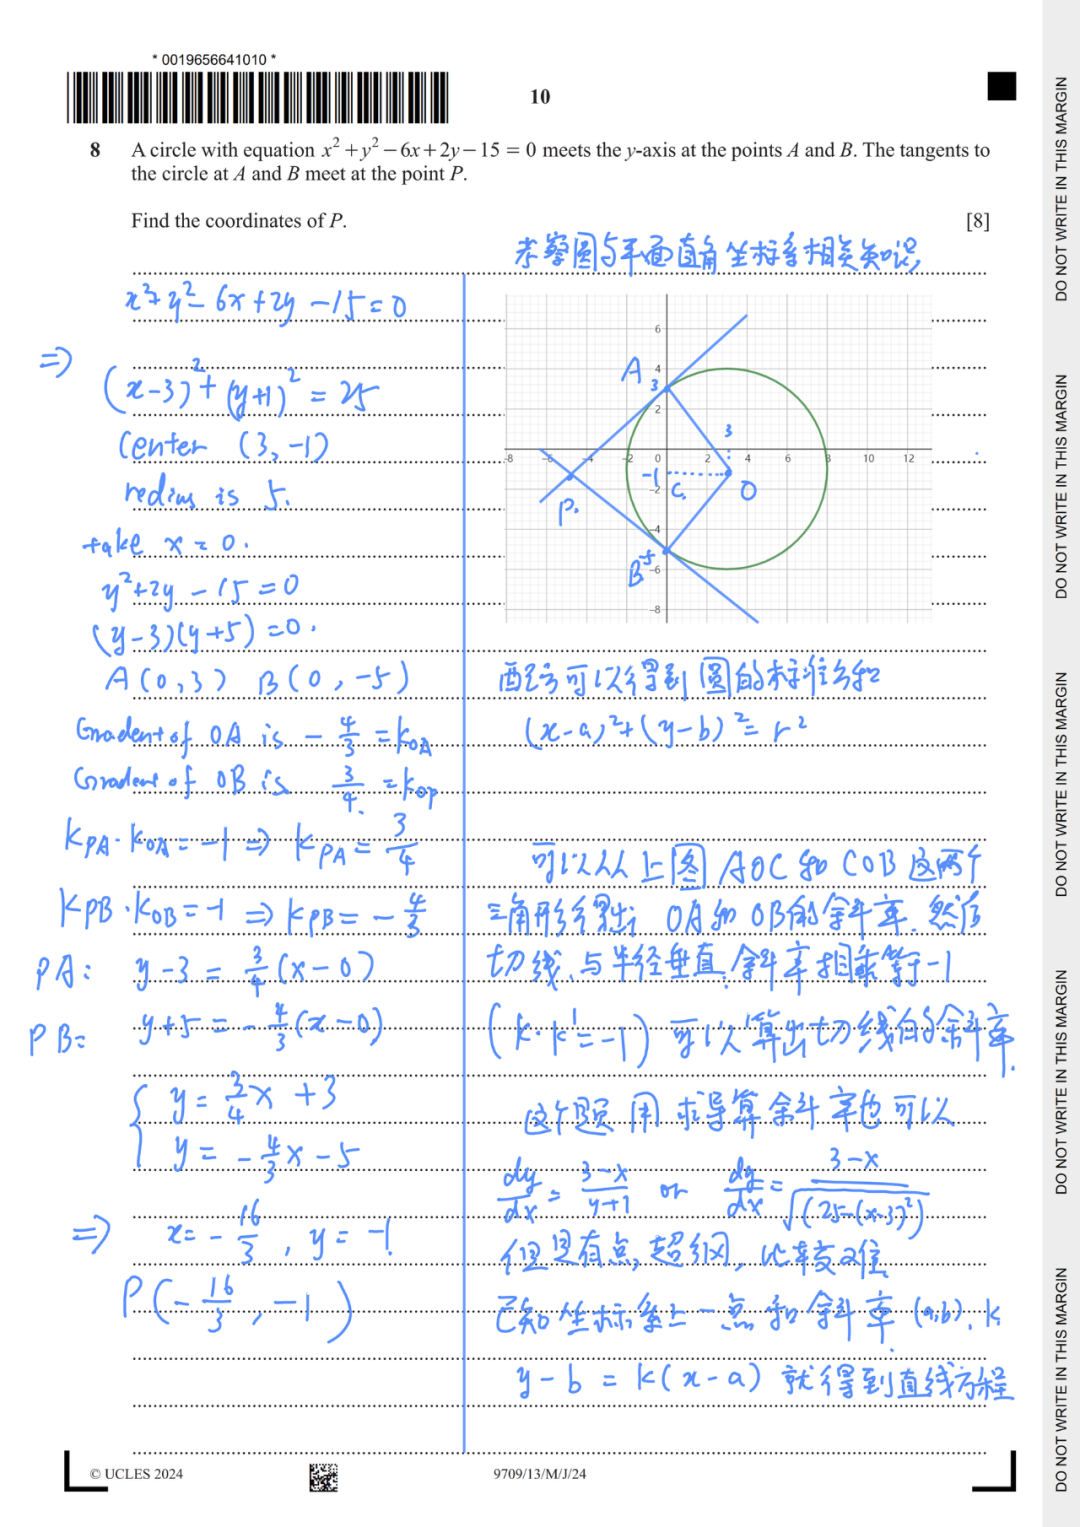 * 0019656641010 *
10
8 A circle with equation x² + y² − 6x + 2y − 15 = 0 meets the y-axis at the points A and B. The tangents to
the circle at A and B meet at the point P.
Find the coordinates of P. [8]
考察圆与平面直角坐标系相关知识
x²+y²-6x+2y-15=0
⇒ (x-3)²+(y+1)²=25
Center (3,-1)
redius is 5.
take x=0.
y²+2y-15=0
(y-3)(y+5)=0.
A(0,3) B(0,-5)
Gradent of OA is -4/3 = kOA
Gradent of OB is 3/4. = kOP
kPA·kOA=-1 ⇒ kPA=3/4
kPB·kOB=-1 ⇒ kPB=-4/3
PA: y-3=3/4(x-0)
PB: y+5=-4/3(x-0)
{ y=3/4x+3
y=-4/3x-5
⇒ x=-16/3, y=-1
P(-16/3, -1)
6
A 4
3
2
3
-8 -6 -4 -2 0 2 4 6 8 10 12
-1
-2 C. O
P.
-4
B -5
-6
-8
配方可以得到圆的标准方程
(x-a)²+(y-b)²=r²
可以从上图AOC和COB这两个
三角形得出OA和OB的斜率.然后
切线与半径垂直,斜率相乘等于-1
(k·k'=-1)可以算出切线的斜率.
这个题用求导算斜率也可以
dy/dx=3-x/y+1 or dy/dx=3-x/√(25-(x-3)²)
但是有点超纲,比较难
已知坐标系上一点和斜率(a,b),k
y-b=k(x-a)就得到直线方程
© UCLES 2024
9709/13/M/J/24
DO NOT WRITE IN THIS MARGIN
DO NOT WRITE IN THIS MARGIN
DO NOT WRITE IN THIS MARGIN
DO NOT WRITE IN THIS MARGIN
DO NOT WRITE IN THIS MARGIN